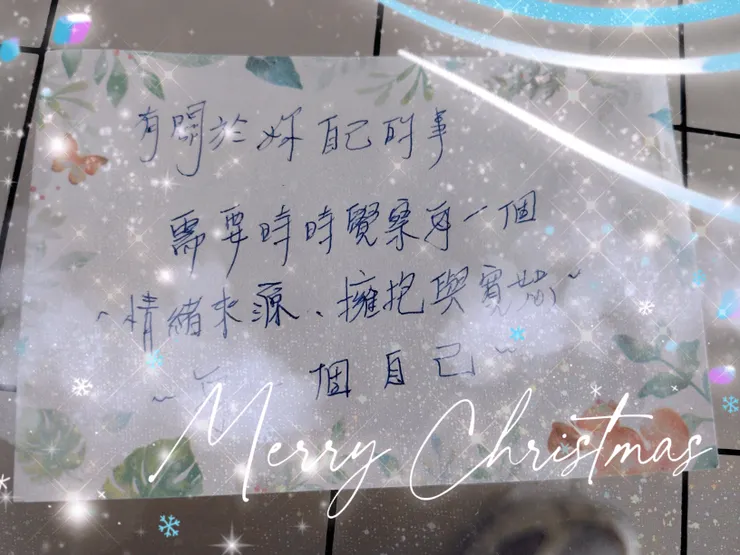 有關於妳自己的事
需要時時覺察每一個
~情緒來源、擁抱與寬恕~
~ 一個自己~
Merry Christmas